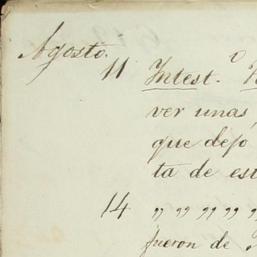 Agosto.
11 Intest.º
ver unas
que dejo
ta de est
14 " " " " "
fueron de